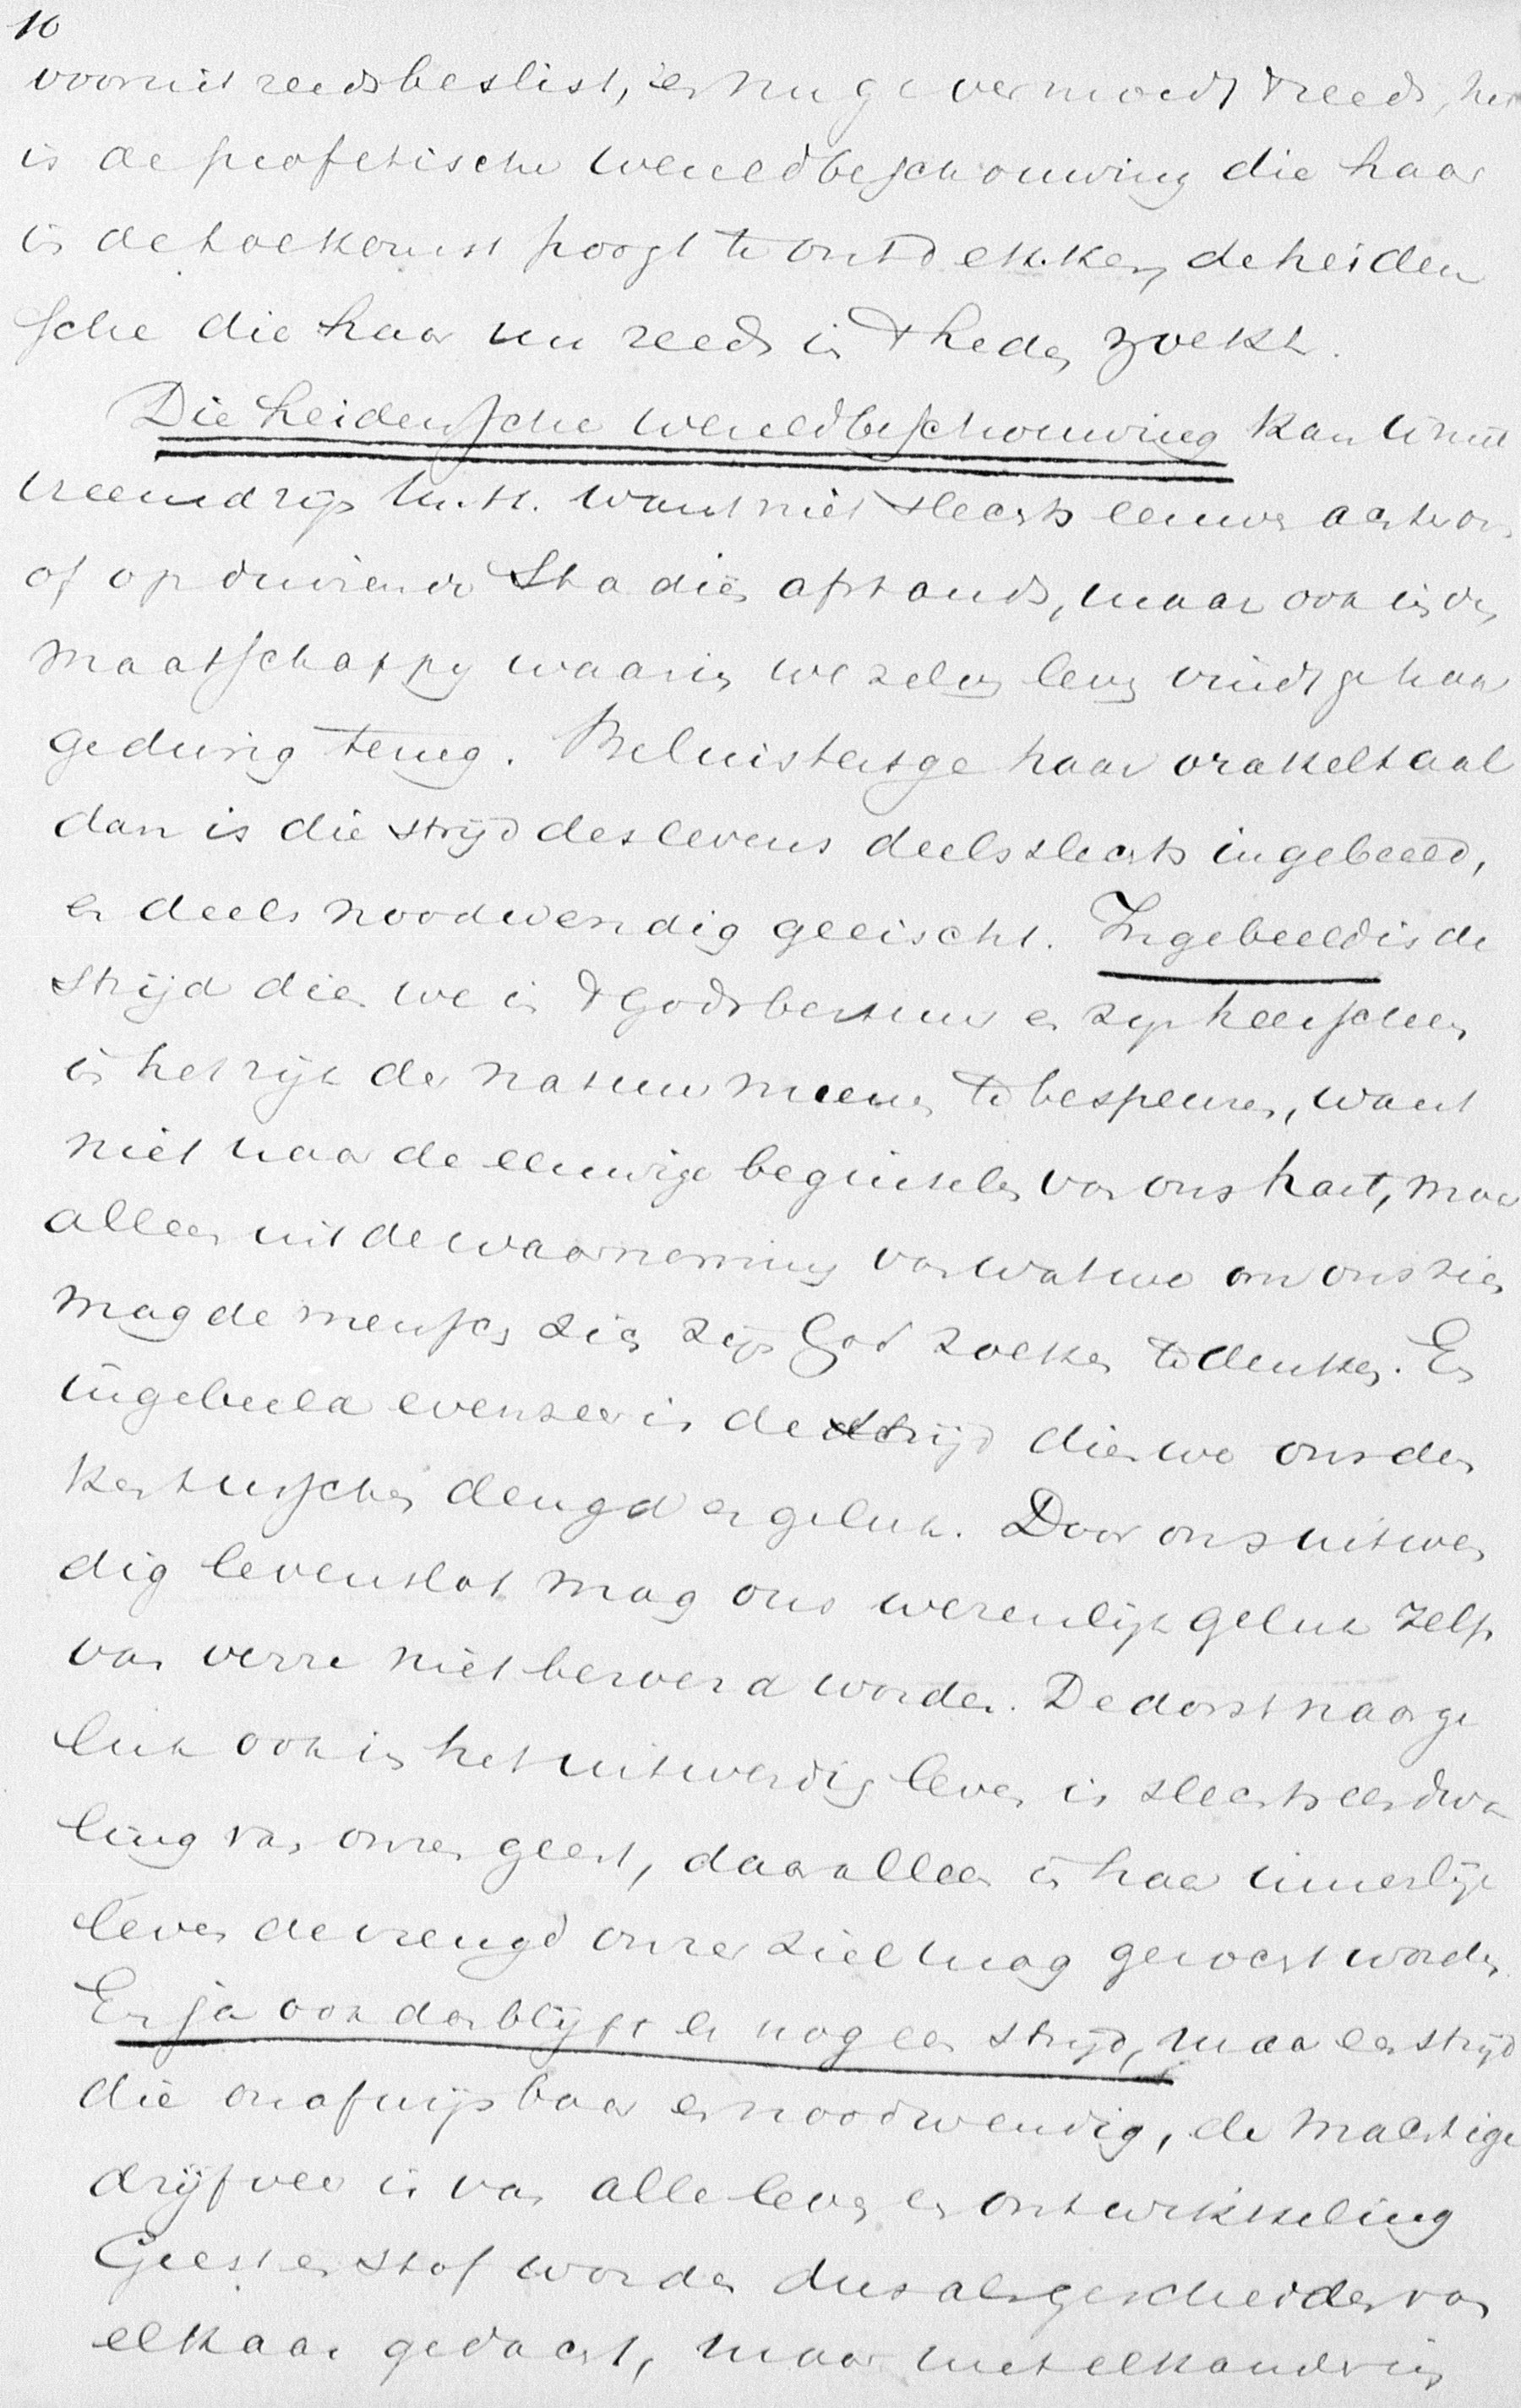 10
vooruit reeds beslist, en nu ge vermoedt reeds, het
is de profetische wereldbeschouwing die haar
in de toekomst poogt te ontdekken, de heiden
sche die haar nu reeds in 't heden zoekt.
Die heidensche wereldbeschouwing kan U niet
vreemd zijn M.H. want niet slechts eeuwen achter ons
of op duizende Stadiën afstands, maar ook in de
maatschappy waarin we zelven leven vindt ge haar
gedurig terug. Beluistert ge haar orakeltaal
dan is die strijd des levens deels slechts ingebeeld,
en deels noodwendig geeischt. Ingebeeld is de
strijd dien we in 't Godsbestuur en zijn heerschen
in het rijk der natuur meenen te bespeuren, want
niet naar de eeuwige beginselen van ons hart, maar
alleen uit de waarneming van wat we om ons zien
mag de mensch zich zijn God zoeken te denken. En
ingebeeld evenzeer is de strijd dien we ons den
ken tusschen deugd en geluk. Door ons uitwen
dig levenslot mag ons wezenlijk geluk zelfs
van verre niet beroerd worden. De dorst naar ge
luk ook in het uitwendig leven is slechts een dwa
ling van onzen geest, daar alleen in haar innerlijk
leven de vreugd onzer ziel mag gezocht worden.
En ja ook dan blijft er nog een strijd, maar een strijd
die onafwijsbaar en noodwendig, de machtige
drijfveer is van alle leven en ontwikkeling
Geest en stof worden dus als gescheiden van
elkaar gedacht, maar met elkander in